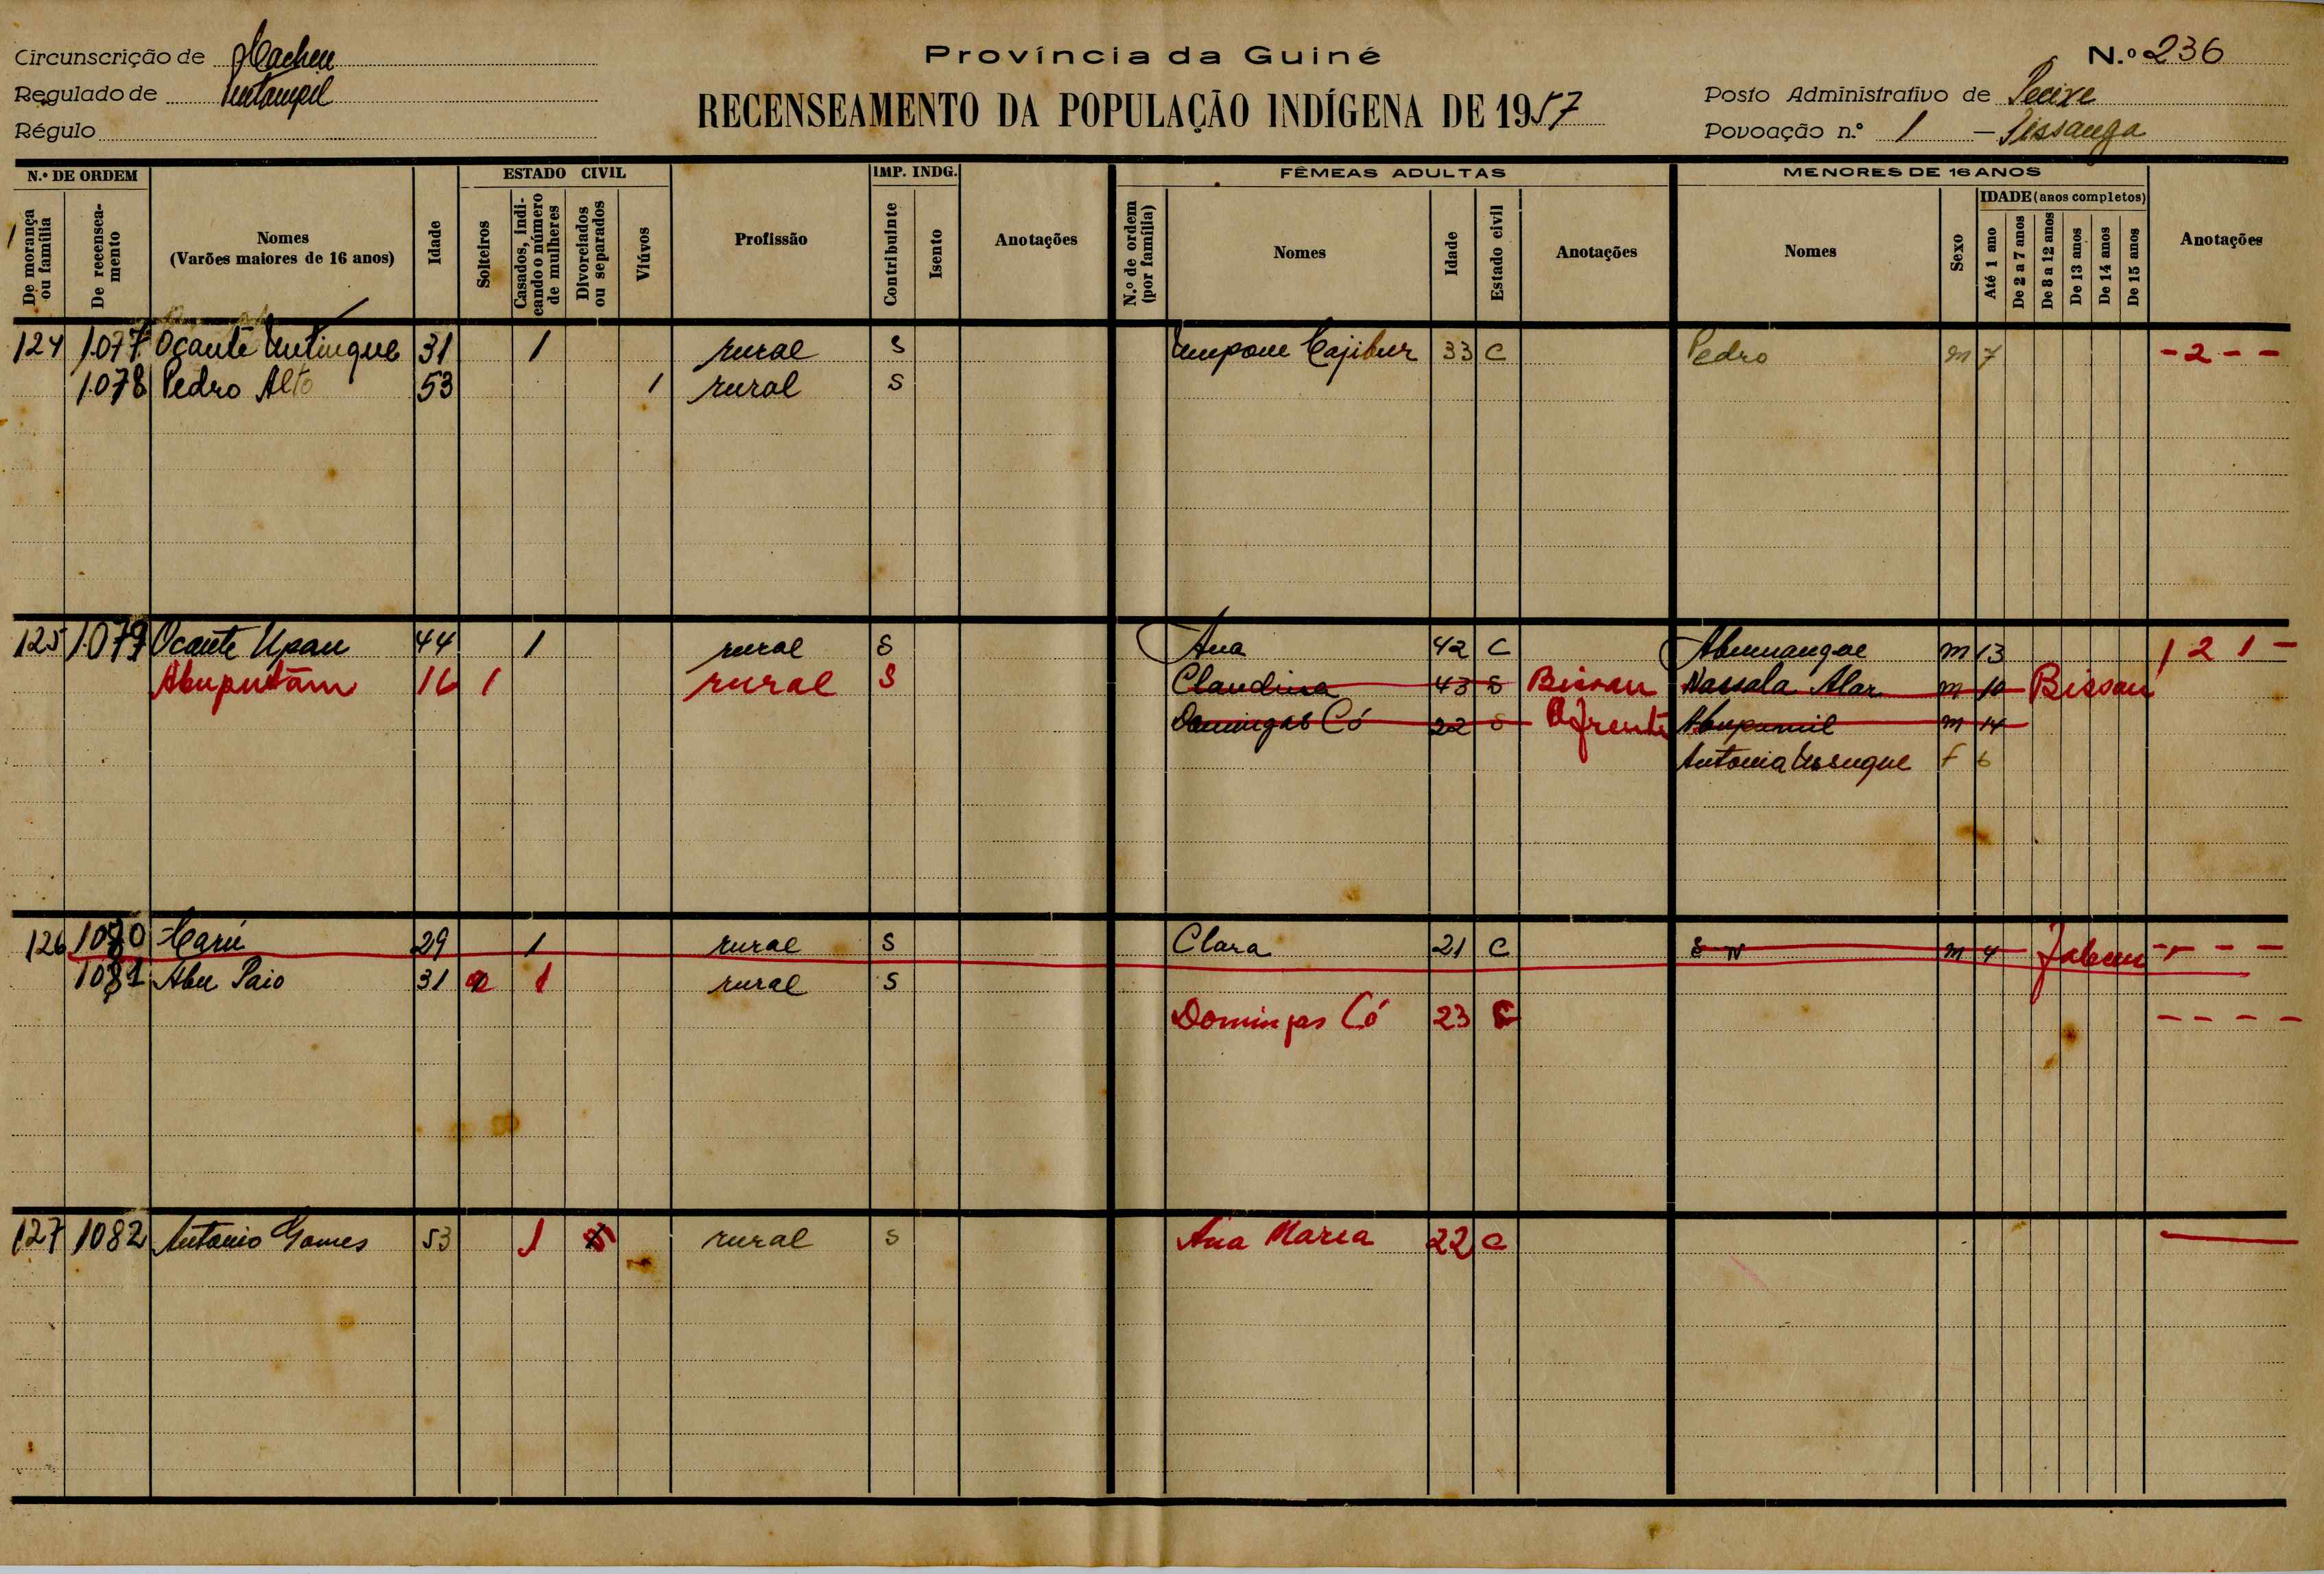 Circunscrição de Cacheu
Regulado de
Régulo
Província da Guiné
RECENSEAMENTO DA POPULAÇÃO INDÍGENA DE 1957
N.º 236
Posto Administrativo de Pecixe
Povoação n.º 1 —
N.º DE ORDEM
De morança ou família
De recenseamento
Nomes
(Varões maiores de 16 anos)
Idade
ESTADO CIVIL
Solteiros
Casados, indicando o número de mulheres
Divorciados ou separados
Viúvos
Profissão
IMP. INDG.
Contribuinte
Isento
Anotações
FÊMEAS ADULTAS
N.º de ordem (por família)
Nomes
Idade
Estado civil
Anotações
MENORES DE 16 ANOS
Nomes
Sexo
IDADE (anos completos)
Até 1 ano
De 2 a 7 anos
De 8 a 12 anos
De 13 anos
De 14 anos
De 15 anos
Anotações
124 1.077 Ocante 31 1 rural S 33 C Pedro m 7 - 2 - -
1.078 Pedro Alto 53 1 rural S
125 1.079 Ocante Upau 44 1 rural S Ana 42 C m 13 1 2 1 -
Abuputäm 16 1 rural S Claudina 43 S Bissau Nassala Alar m 10 Bissau
Domingas Có 22 S m 14
Antonia f 6
126 1080 29 1 rural S Clara 21 C S N m 4 - - - -
1081 Abu Paio 31 1 rural S
Domingas Có 23 C - - - -
127 1082 Antonio Gomes 53 1 rural S Ana Maria 22 C